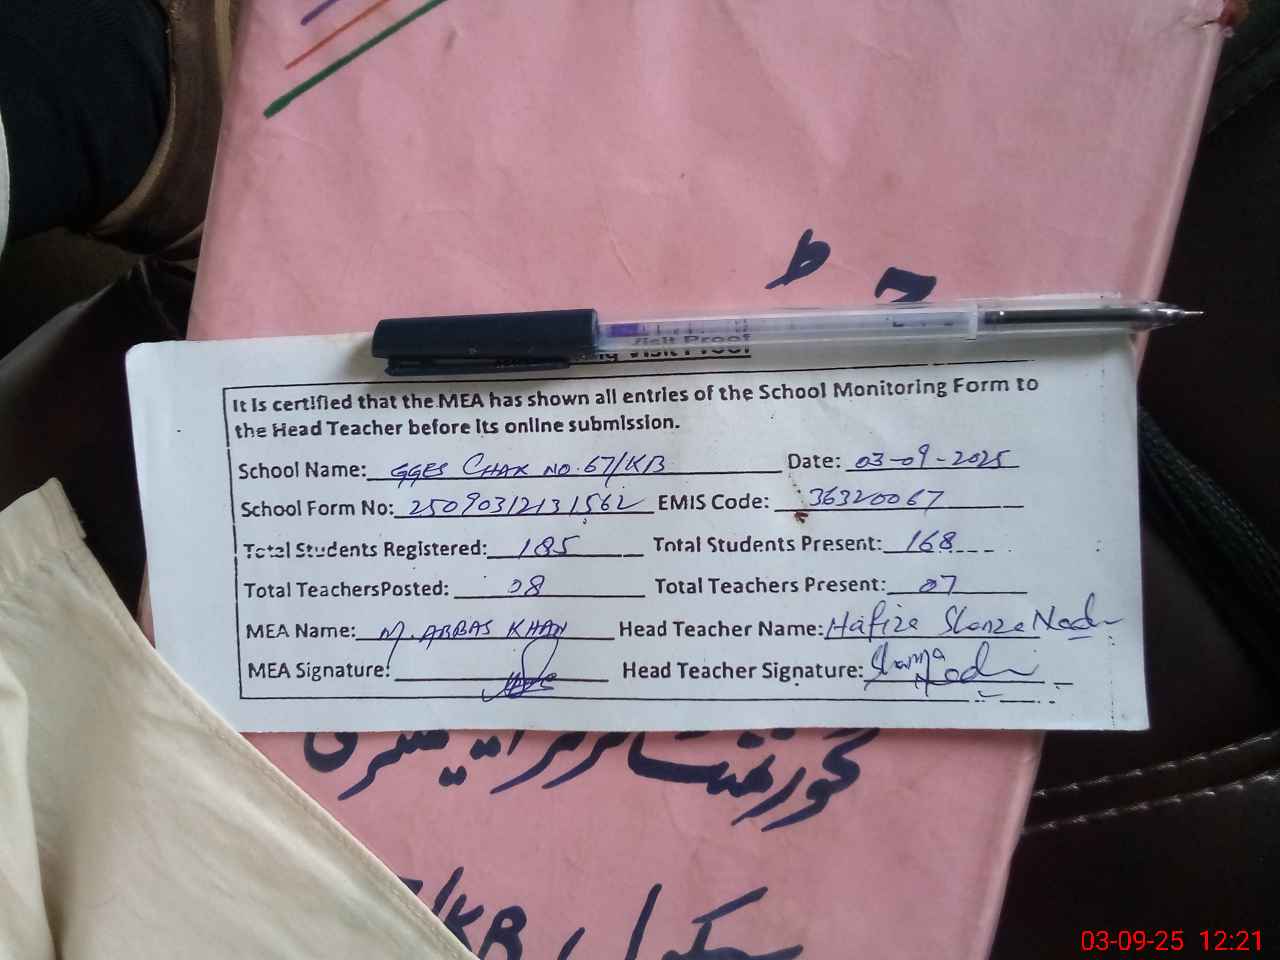 ط ح
Visit Proof
It is certified that the MEA has shown all entries of the School Monitoring Form to
the Head Teacher before its online submission.
School Name: GGES CHAK NO.67/KB Date: 03-09-2025
School Form No: 25090312131562 EMIS Code: 36320067
Total Students Registered: 185 Total Students Present: 168
Total TeachersPosted: 08 Total Teachers Present: 07
MEA Name: M. ABBAS KHAN Head Teacher Name: Hafiza Shanza Nadr
MEA Signature: Head Teacher Signature: Shanza Nadr
گورنمنٹ گرلز ایلیمنٹری
سکول 7/KB
03-09-25 12:21